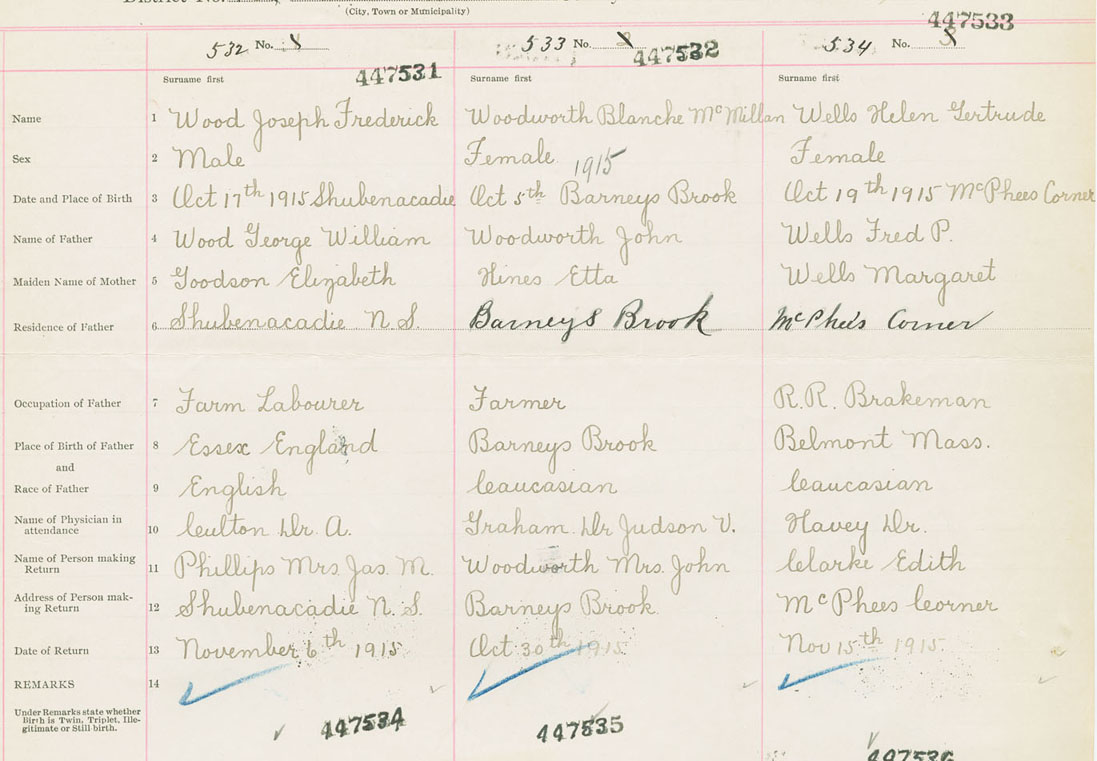 (City, Town or Municipality)
447533
532 No. 533 No. 447532 534 No.
Surname first 447531 Surname first Surname first
Name 1 Wood Joseph Frederick Woodworth Blanche McMillan Wells Helen Gertrude
Sex 2 Male Female Female
1915
Date and Place of Birth 3 Oct 17th 1915 Shubenacadie Oct 5th Barneys Brook Oct 19th 1915 McPhees Corner
Name of Father 4 Wood George William Woodworth John Wells Fred P.
Maiden Name of Mother 5 Goodson Elizabeth Hines Etta Wells Margaret
Residence of Father 6 Shubenacadie N.S. Barneys Brook McPhees Corner
Occupation of Father 7 Farm Labourer Farmer R.R. Brakeman
Place of Birth of Father 8 Essex England Barneys Brook Belmont Mass.
and
Race of Father 9 English Caucasian Caucasian
Name of Physician in
attendance 10 Dr. A. Graham Dr Judson V. Havey Dr.
Name of Person making
Return 11 Phillips Mrs. Jas. M. Woodworth Mrs. John Clarke Edith
Address of Person mak-
ing Return 12 Shubenacadie N.S. Barneys Brook McPhees Corner
Date of Return 13 November 6th 1915 Oct 30th 1915 Nov 15th 1915
REMARKS 14
Under Remarks state whether
Birth is Twin, Triplet, Ille-
gitimate or Still birth.
447534 447535